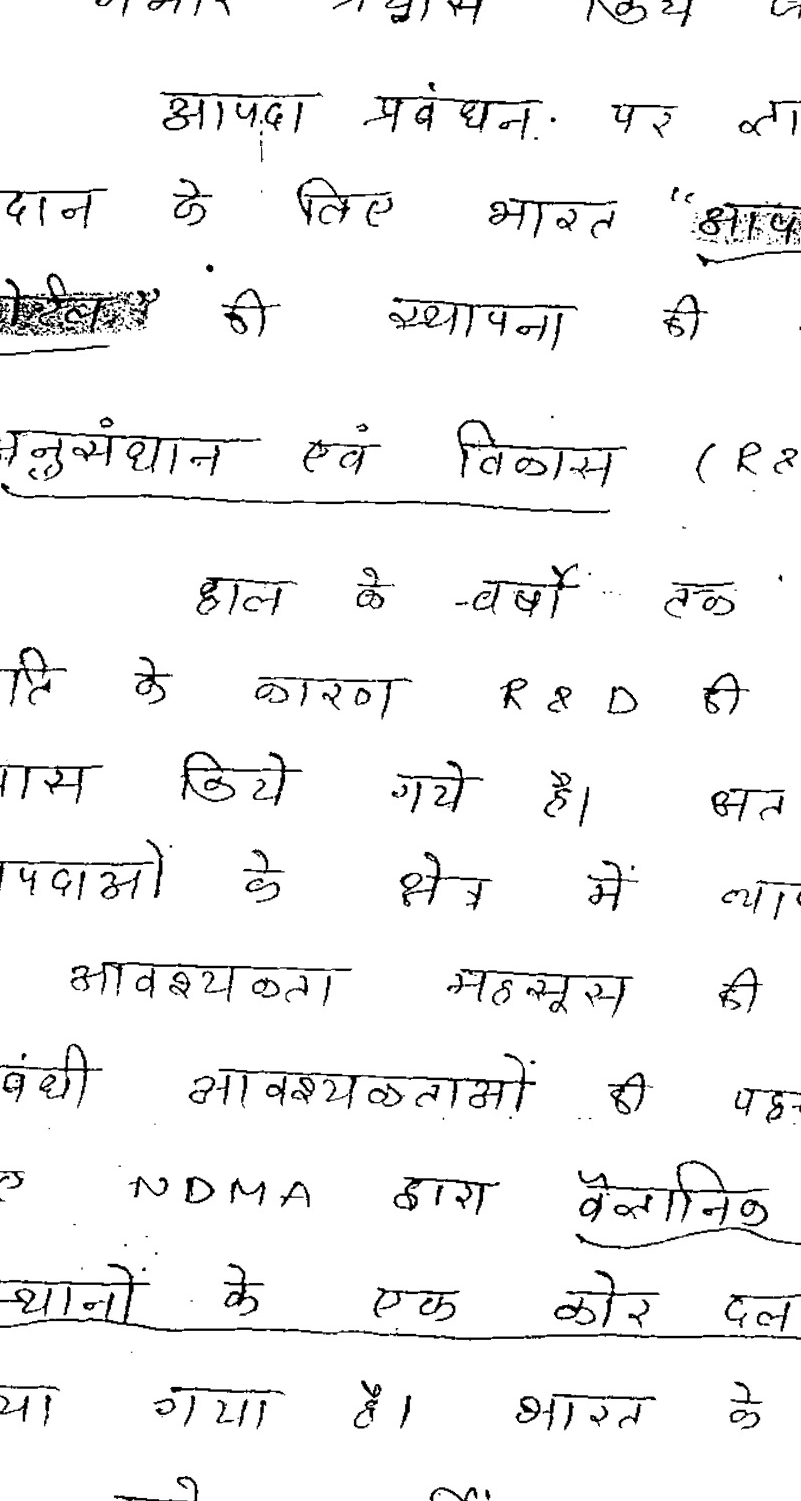 प्रयास किये
आपदा प्रबंधन पर
दान के लिए भारत "आप
पोर्टल" की स्थापना की
अनुसंधान एवं विकास (R &
हाल के वर्षों तक
ति के कारण R & D की
यास किये गये है। अत
पदाओं के क्षेत्र में व्या
आवश्यकता महसूस की
बंधी आवश्यकताओं की पह
NDMA द्वारा वैज्ञानिक
स्थानों के एक कोर दल
या गया है। भारत के